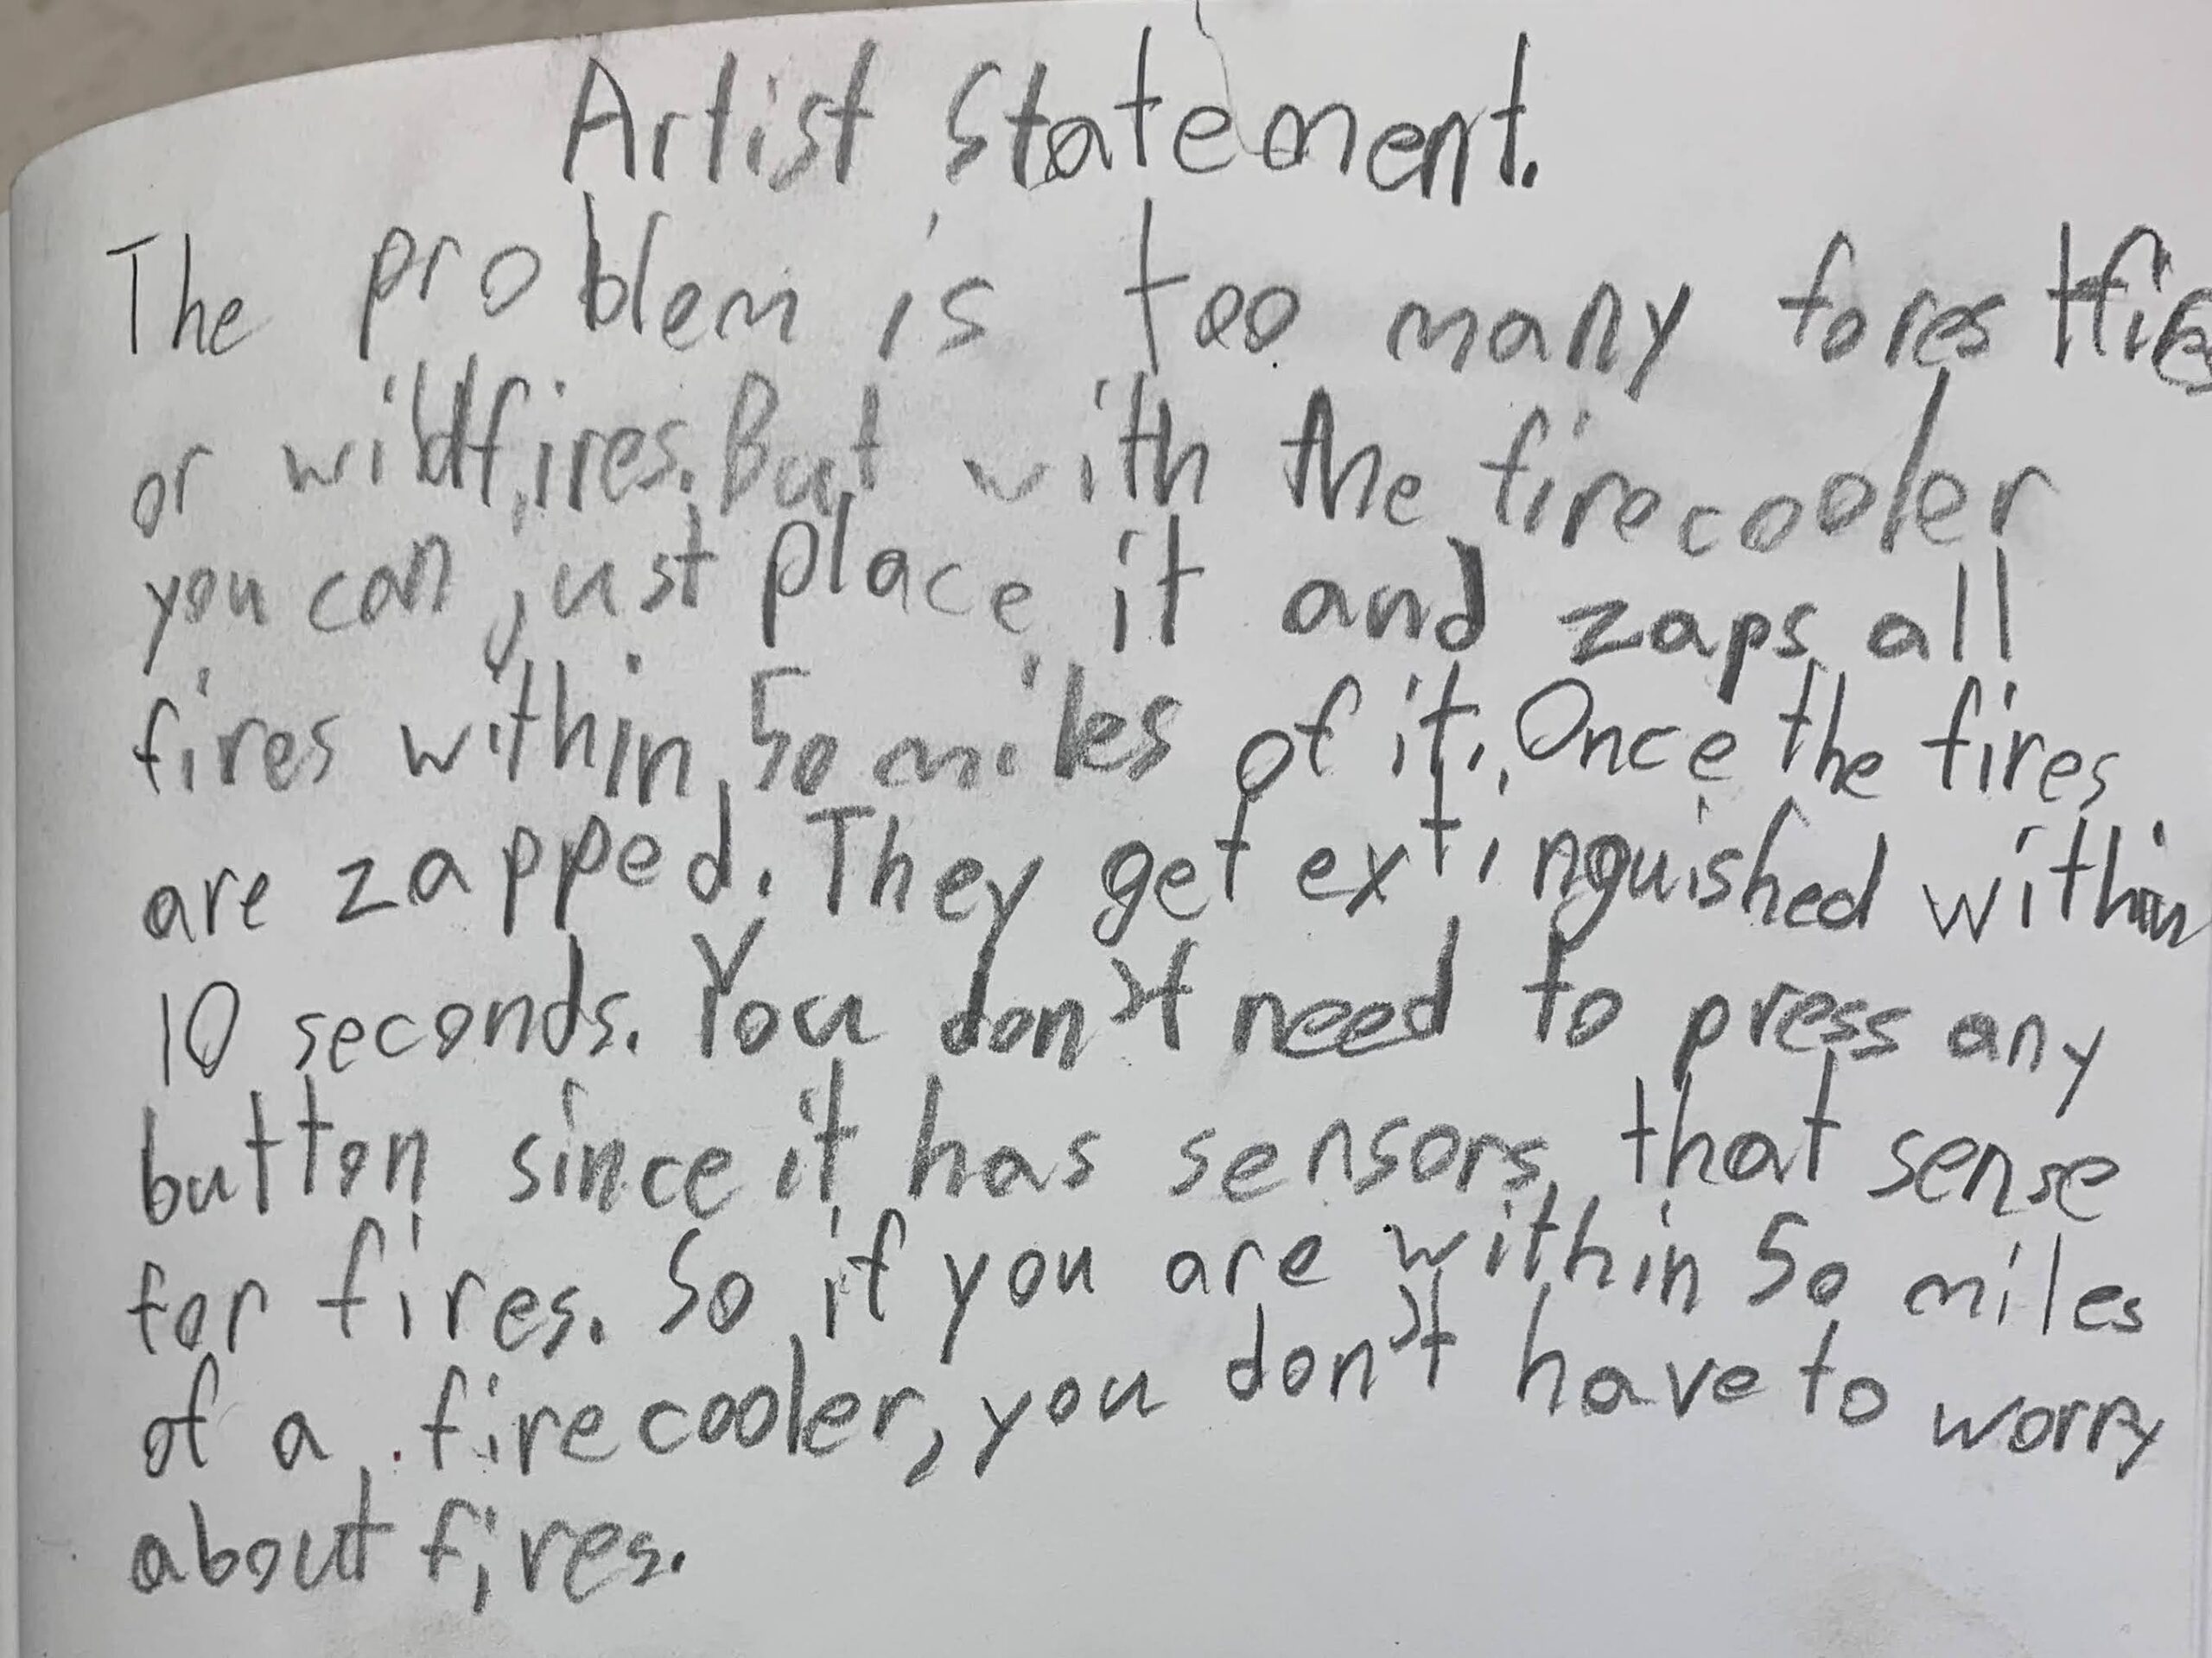 Artist Statement.
The problem is too many forest fires
or wildfires. But with the firecooler
you can just place it and zaps all
fires within 50 miles of it. Once the fires
are zapped. They get extinguished within
10 seconds. You don't need to press any
button since it has sensors that sense
for fires. So if you are within 50 miles
of a firecooler, you don't have to worry
about fires.